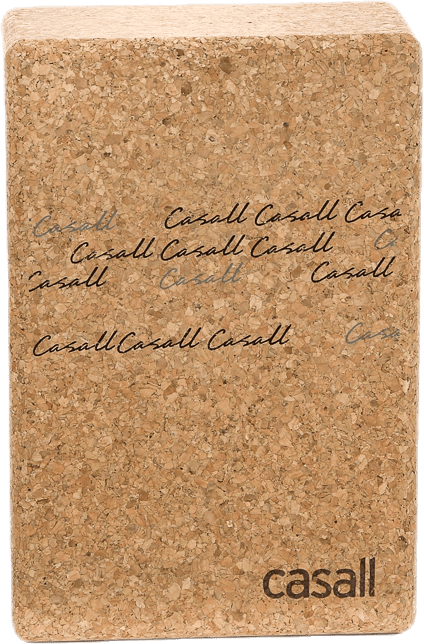 Casall Casall Casall Casa
Casall Casall Casall Ca
Casall Casall Casall
Casall Casall Casall Casa
casall